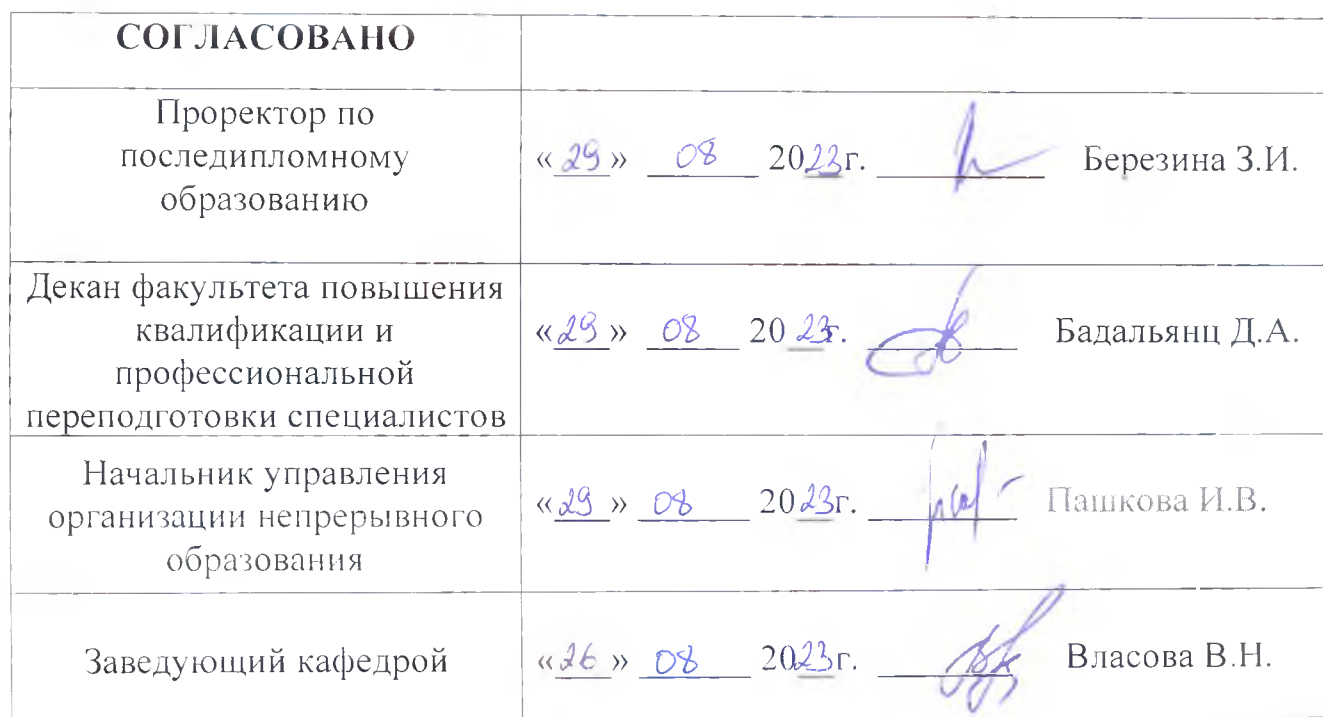 СОГЛАСОВАНО
Проректор по
последипломному
образованию
«29» 08 2023г. Березина З.И.
Декан факультета повышения
квалификации и
профессиональной
переподготовки специалистов
«29» 08 2023г. Бадальянц Д.А.
Начальник управления
организации непрерывного
образования
«29» 08 2023г. Пашкова И.В.
Заведующий кафедрой
«26» 08 2023г. Власова В.Н.